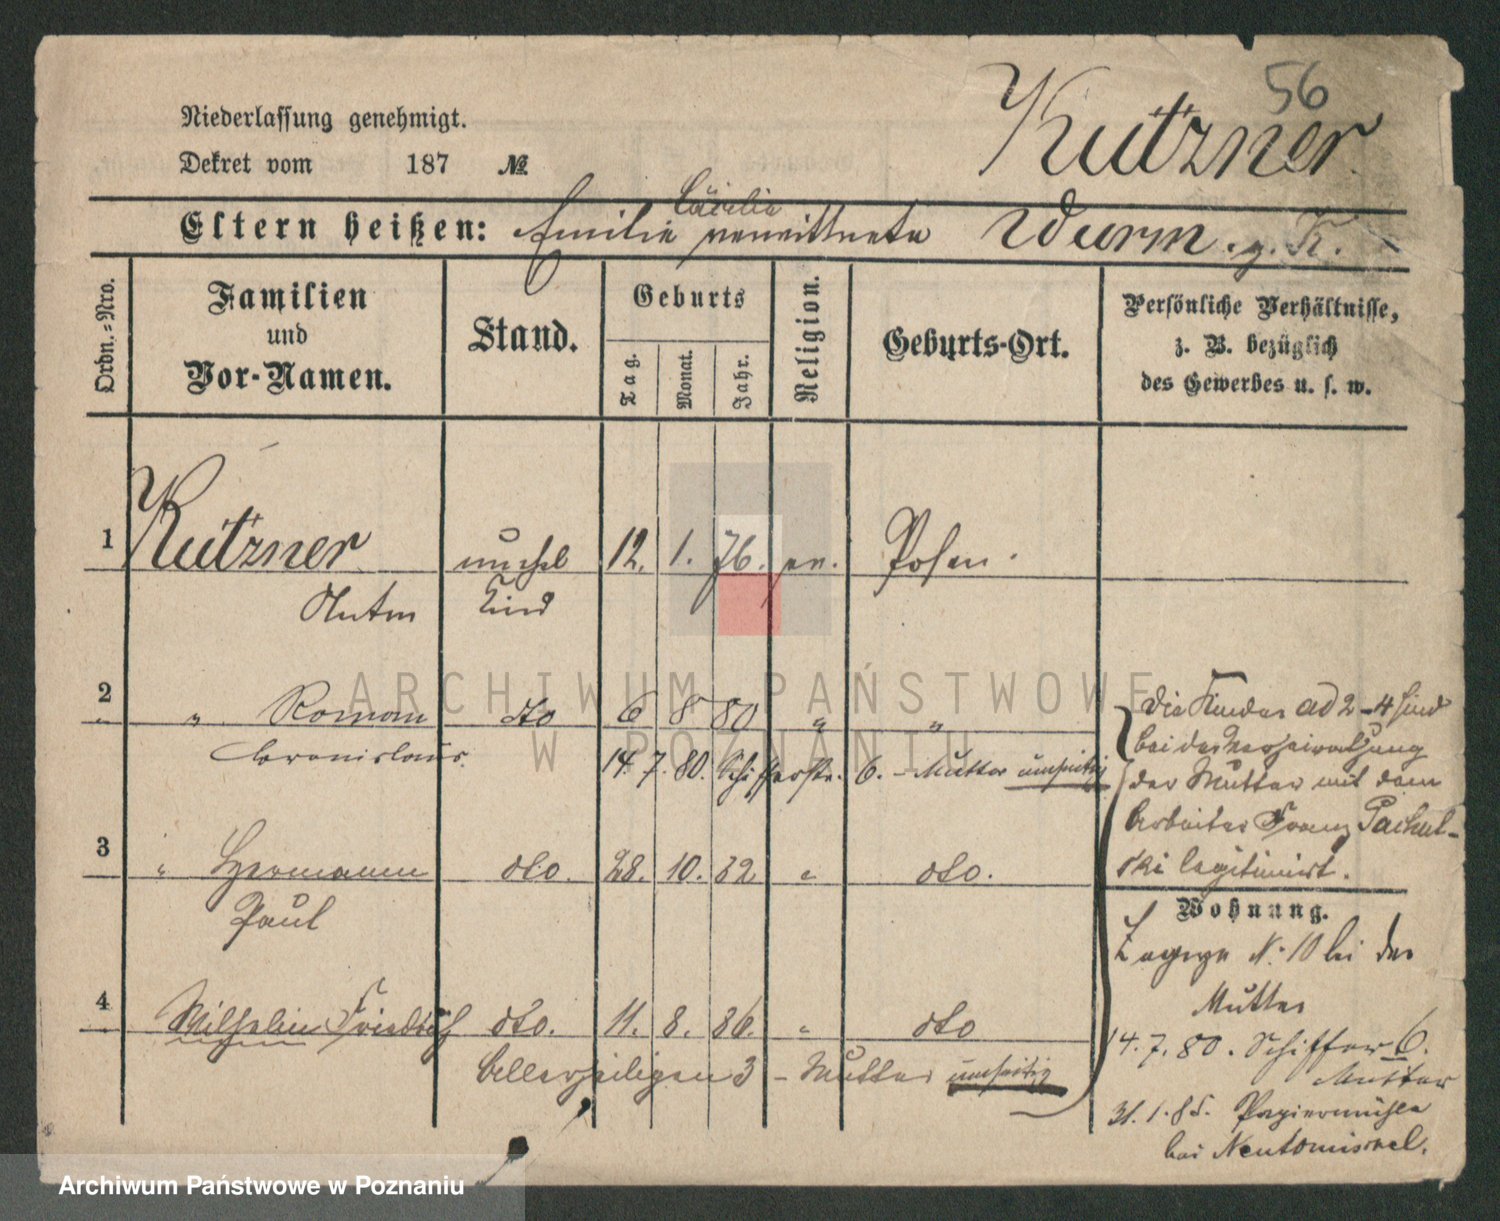 56
Kutzner
Niederlassung genehmigt.
Dekret vom 187 №
Eltern heißen: Emilie Cäcilie verwittwete Wurm. g. K.
Ordn.=Nro.
Familien und Vor-Namen.
Stand.
Geburts
Tag.
Monat.
Jahr.
Religion.
Geburts-Ort.
Persönliche Verhältnisse,
z. B. bezüglich
des Gewerbes u. s. w.
1 Kutzner unehel 12. 1. 76. ev. Posen.
Anton Kind
2 " Roman dto 6 8 80 " "
Bronislaus. 14. 7. 80. Schifferstr. 6. - Mutter umseitig
3 " Hermann dto. 28. 10. 82. " dto.
Paul
4 Wilhelm Friedrich dto. 11. 8. 86. " dto
Allerheiligen 3 - Mutter umseitig
Die Kinder ad 2-4 sind
bei der Verheirathung
der Mutter mit dem
Arbeiter Franz Pachol-
ski legitimirt.
Wohnung.
Zagorze N. 10 bei der
Mutter
14. 7. 80. Schiffer 6.
Mutter
31. 1. 85. Papiermühle
bei Neutomischel.
ARCHIWUM PAŃSTWOWE
W POZNANIU
Archiwum Państwowe w Poznaniu